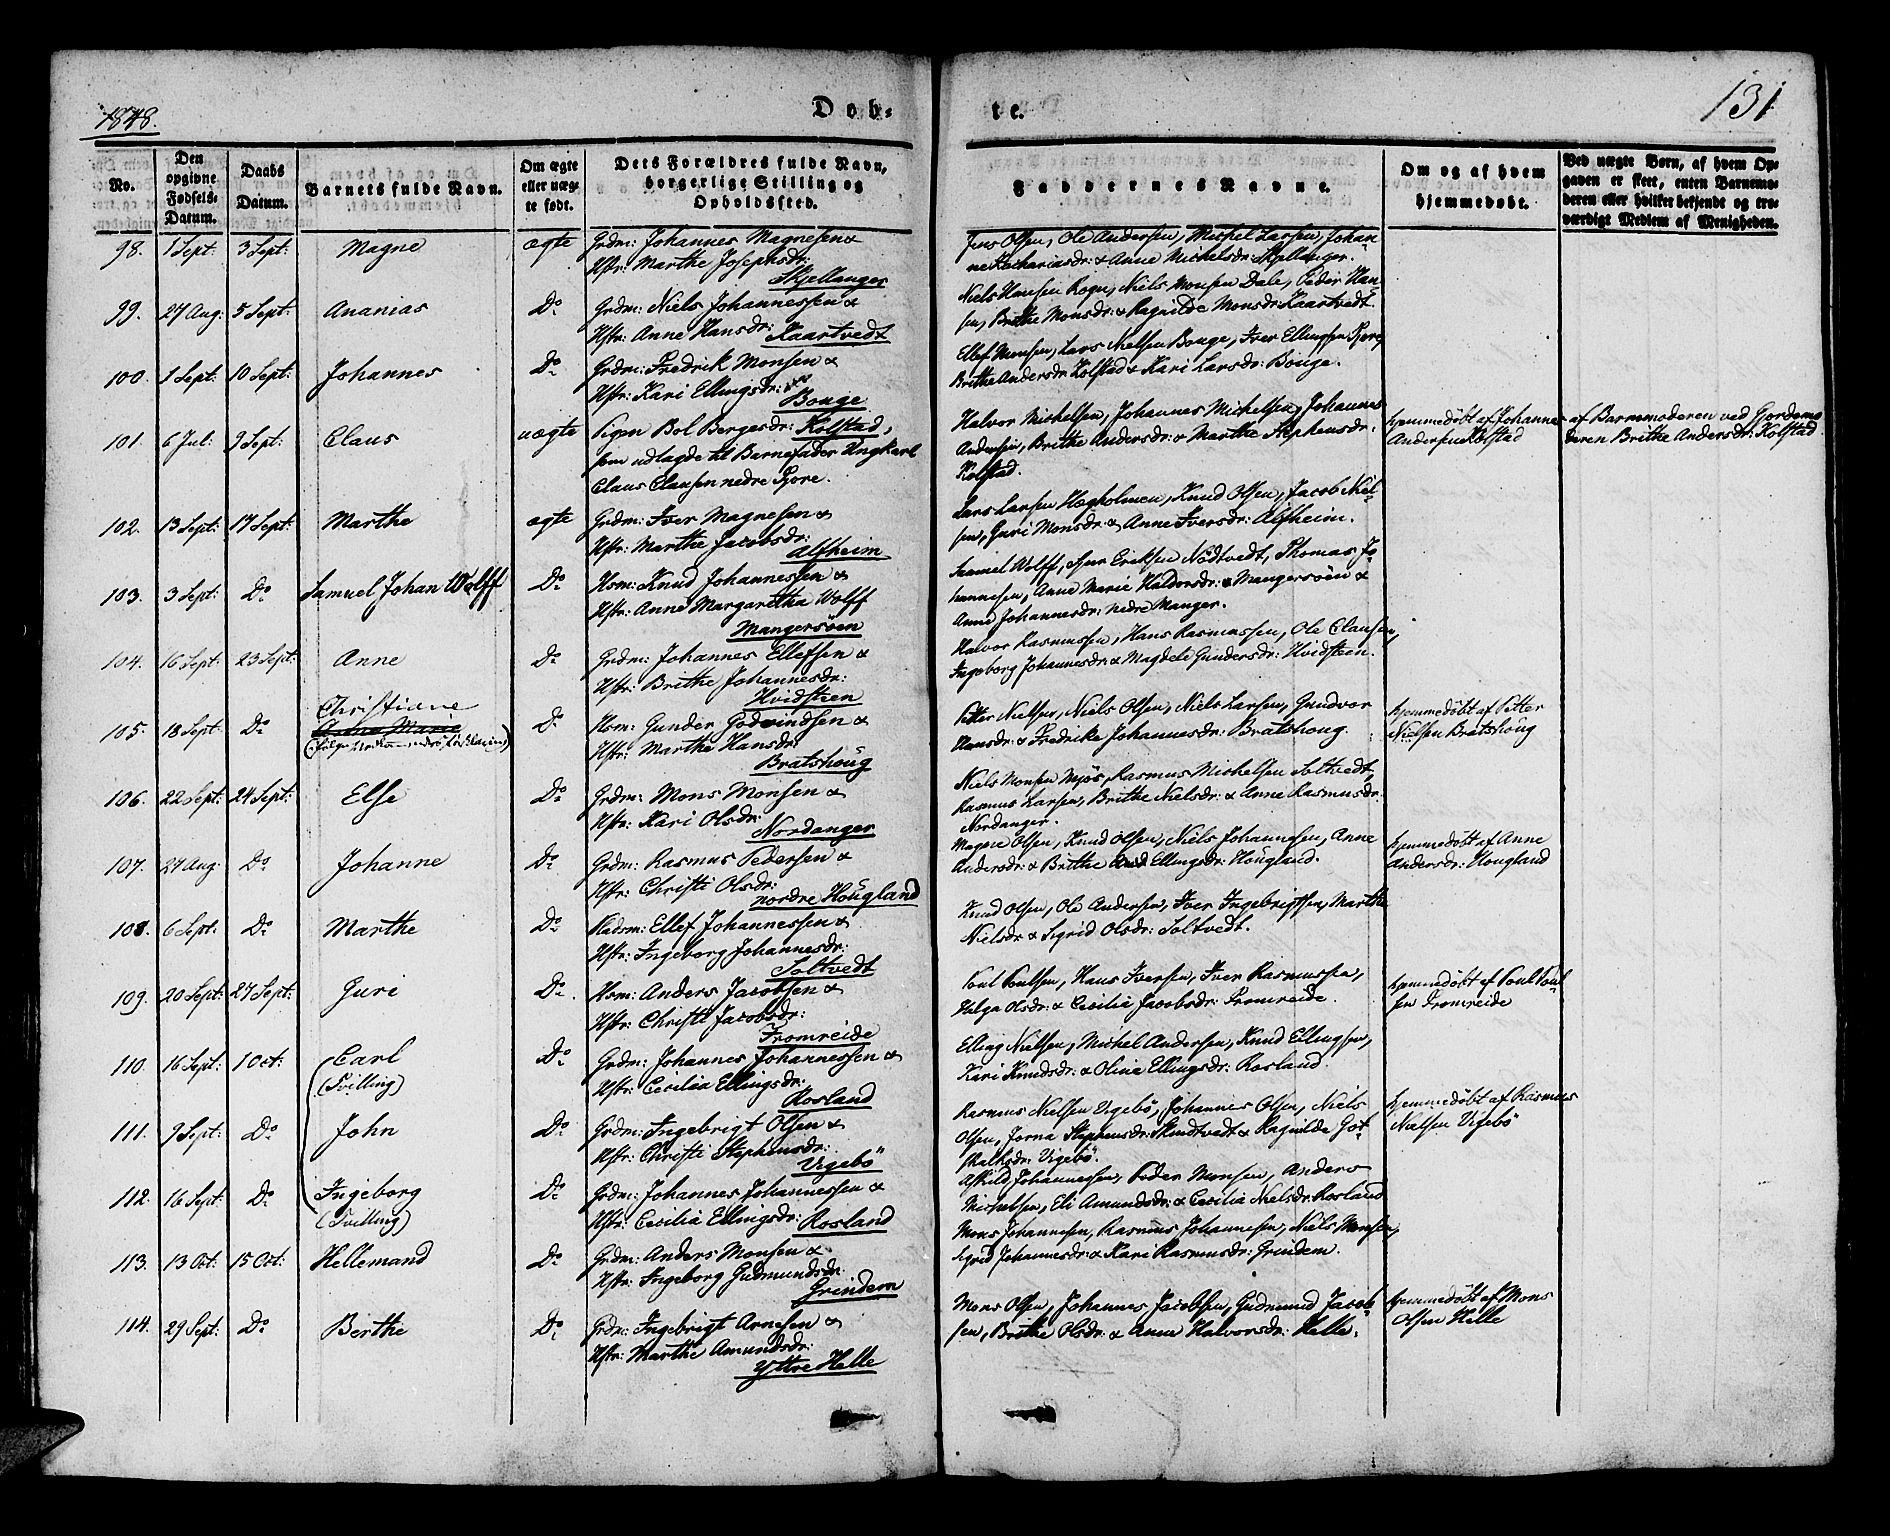 1848.
Dob-
te.
131
No.
Den opgivne Fødsels-Datum.
Daabs Datum.
Barnets fulde Navn.
Om ægte eller uæg-te født.
Dets Forældres fulde Navn, borgerlige Stilling og Opholdssted.
Faddernes Navne.
Om og af hvem hjemmedøbt.
Ved uægte Børn, af hvem Op-gaven er skeet, enten Barnemo-deren eller hvilket bekjendt og tro-værdigt Medlem af Menigheden.
98. 1 Sept: 3 Sept: Magne ægte Grdm: Johannes Magnesen &
Hstr: Marthe Josephsdr:
Skjellanger
Jens Olsen, Ole Andersen, Michel Larsen, Johan-
ne Zachariasdr: & Anne Michelsdr: Skjellanger.
99. 27 Aug: 5 Sept: Ananias Do Grdm: Niels Johannessen &
Hstr: Anne Hansdr: Kaartvedt
Niels Hansen Rogn, Niels Monsen Dale, Peder Han-
sen, Brithe Monsdr: & Ragnilde Monsdr: Kaartvedt.
100. 1 Sept: 10 Sept: Johannes Do Grdm: Fredrik Monsen &
Hstr: Kari Ellingsdr:
Bouge
Ellef Monsen, Lars Nielsen Bouge, Iver Ellingsen
Brithe Andersdr: Kolstad & Kari Larsdr: Bouge.
101. 6 Jul: 9 Sept: Claus uægte Pigen Bol Bergesdr: Kolstad,
som udlagde til Barnefader Ungkarl
Claus Clausen nedre Fjore.
Halvor Michelsen, Johannes Michelsen, Johannes
Andersen, Brithe Andersdr: & Marthe Stephensdr:
Kolstad.
hjemmedöbt af Johannes
Andersen Kolstad
af Barnemoderen ved Gjordemo
deren Brithe Andersdr: Kolstad
102. 13 Sept: 17 Sept: Marthe ægte Grdm: Iver Magnesen &
Hstr: Marthe Jacobsdr:
Alfheim
Lars Larsen Hægholmen, Knud Olsen, Jacob Niel-
sen, Guri Monsdr: & Anne Iversdr: Alfheim.
103. 3 Sept: Do Samuel Johan Wolff Do Hsm: Knud Johannessen &
Hstr: Anne Margaretha Wolff
Mangersöen
Samuel Wolff, Eriksen Nödtvedt, Thomas Jo-
hannesen, Anne Marie Haldorsdr: Mangersöen &
Anne Johannesdr: nedre Manger.
104. 16 Sept: 23 Sept: Anne Do Grdm: Johannes Ellefsen &
Hstr: Brithe Johannesdr:
Hvidsteen
Halvor Rasmussen, Hans Rasmussen, Ole Clausen,
Ingeborg Johannesdr: & Magdele Gundersdr: Hvidsteen.
105. 18 Sept: Do Christiane
Anne Marie
Do Hsm: Gunder Godvindsen &
Hstr: Marthe Hansdr:
Bratshoug
Petter Nielsen, Niels Olsen, Niels Larsen, Gundvor
Hansdr: & Fredrike Johannesdr: Bratshoug.
hjemmedöbt af Petter
Nielsen Bratshoug
106. 22 Sept: 24 Sept: Else Do Grdm: Mons Monsen &
Hstr: Kari Olsdr:
Nordanger
Niels Monsen Mjös, Rasmus Michelsen Soltvedt,
Rasmus Larsen, Brithe Nielsdr: & Anne Rasmusdr:
Nordanger.
107. 27 Aug: Do Johanne Do Grdm: Rasmus Pedersen &
Hstr: Christi Olsdr:
nordre Hougland
Mogens Olsen, Knud Olsen, Niels Johannesen, Anne
Andersdr: & Brithe Ellingsdr: Hougland.
hjemmedöbt af Anne
Andersdr: Hougland
108. 6 Sept: Do Marthe Do Pladsm: Ellef Johannessen &
Hstr: Ingeborg Johannesdr:
Soltvedt
Knud Olsen, Ole Andersen, Iver Ingebrigtsen, Marthe
Nielsdr & Sigrid Olsdr: Soltvedt.
109. 20 Sept: 27 Sept: Guri Do Hsm: Anders Jacobsen &
Hstr: Christi Jacobsdr:
Fromreide
Poul Poulsen, Hans Iversen, Iver Rasmussen,
Helga Olsdr: & Cecilia Jacobsdr: Fromreide.
hjemmedöbt af Poul Poul-
sen Fromreide
110. 16 Sept: 1 Oct: Carl
(Tvilling)
Do Grdm: Johannes Johannessen &
Hstr: Cecilia Ellingsdr:
Rosland
Elling Nielsen, Michel Andersen, Knud Ellingsen,
Kari Knudsdr: & Olina Ellingsdr: Rosland.
111. 9 Sept: Do John Do Grdm: Ingebrigt Olsen &
Hstr: Christi Stephensdr:
Vigebö
Rasmus Nielsen Vigebö, Johannes Olsen, Niels
Olsen, Jorna Stephensdr: Skindtvedt & Ragnilde Got-
skalksdr: Vigebö.
hjemmedöbt af Rasmus
Nielsen Vigebö
112. 16 Sept: Do Ingeborg
(Tvilling)
Do Grdm: Johannes Johannessen &
Hstr: Cecilia Ellingsdr: Rosland
Askild Johannessen, Peder Monsen, Anders
Michelsen, Eli Amundsdr: & Cecilia Nielsdr: Rosland
113. 13 Oct: 15 Oct: Hellemand Do Grdm: Anders Monsen &
Hstr: Ingeborg Gudmundsdr:
Grindem
Mons Johannesen, Rasmus Johannesen, Niels Monsen,
Sigrid Johannesdr: & Kari Rasmusdr: Grindem.
114. 29 Sept: Do Berthe Do Grdm: Ingebrigt Arnesen &
Hstr: Marthe Amundsdr:
Yttre Helle
Mons Olsen, Johannes Jacobsen, Gudmund Jacob-
sen, Brithe Olsdr: & Anne Halvorsdr: Helle.
hjemmedöbt af Mons
Olsen Helle